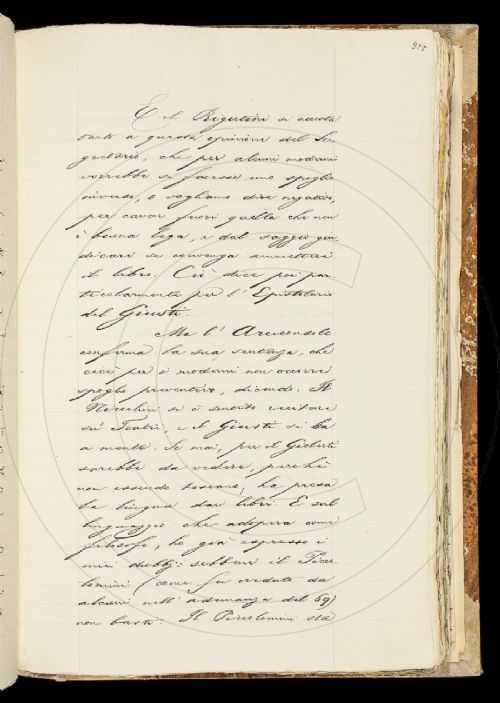 375
E il Rigutini si accosta
tanto a questa opinione del Se-
gretario, che per alcuni moderni
vorrebbe si facesse uno spoglio
inverso, o vogliamo dire negativo,
per cavar fuori quello che non
è buona lega, e dal saggio giu-
dicare se convenga ammettere
il libro. Ciò dice poi par-
ticolarmente per l'Epistolario
del Giusti.
Ma l'Arciconsolo
conferma la sua sentenza, che
cioè per i moderni non occorra
spoglio preventivo, dicendo. Il
Niccolini si è sentito recitare
su' Teatri, e il Giusti si ha
a mente. Se mai, per il Gioberti
sarebbe da vedere, perchè
non essendo toscano, ha presa
la lingua dai libri. E sul
linguaggio che adopera come
filosofo, ho già espresso i
miei dubbj: sebbene il Picco-
lomini (come fu creduto da
alcuni nell'adunanza del 69)
non basti. Il Piccolomini sta